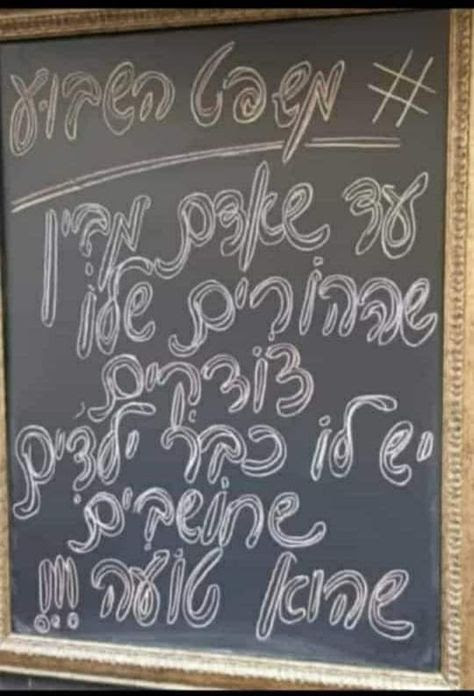 # משפט השבוע
עד שאדם מבין
שההורים שלו
צודקים
יש לו כבר ילדים
שחושבים
שהוא טועה !!!